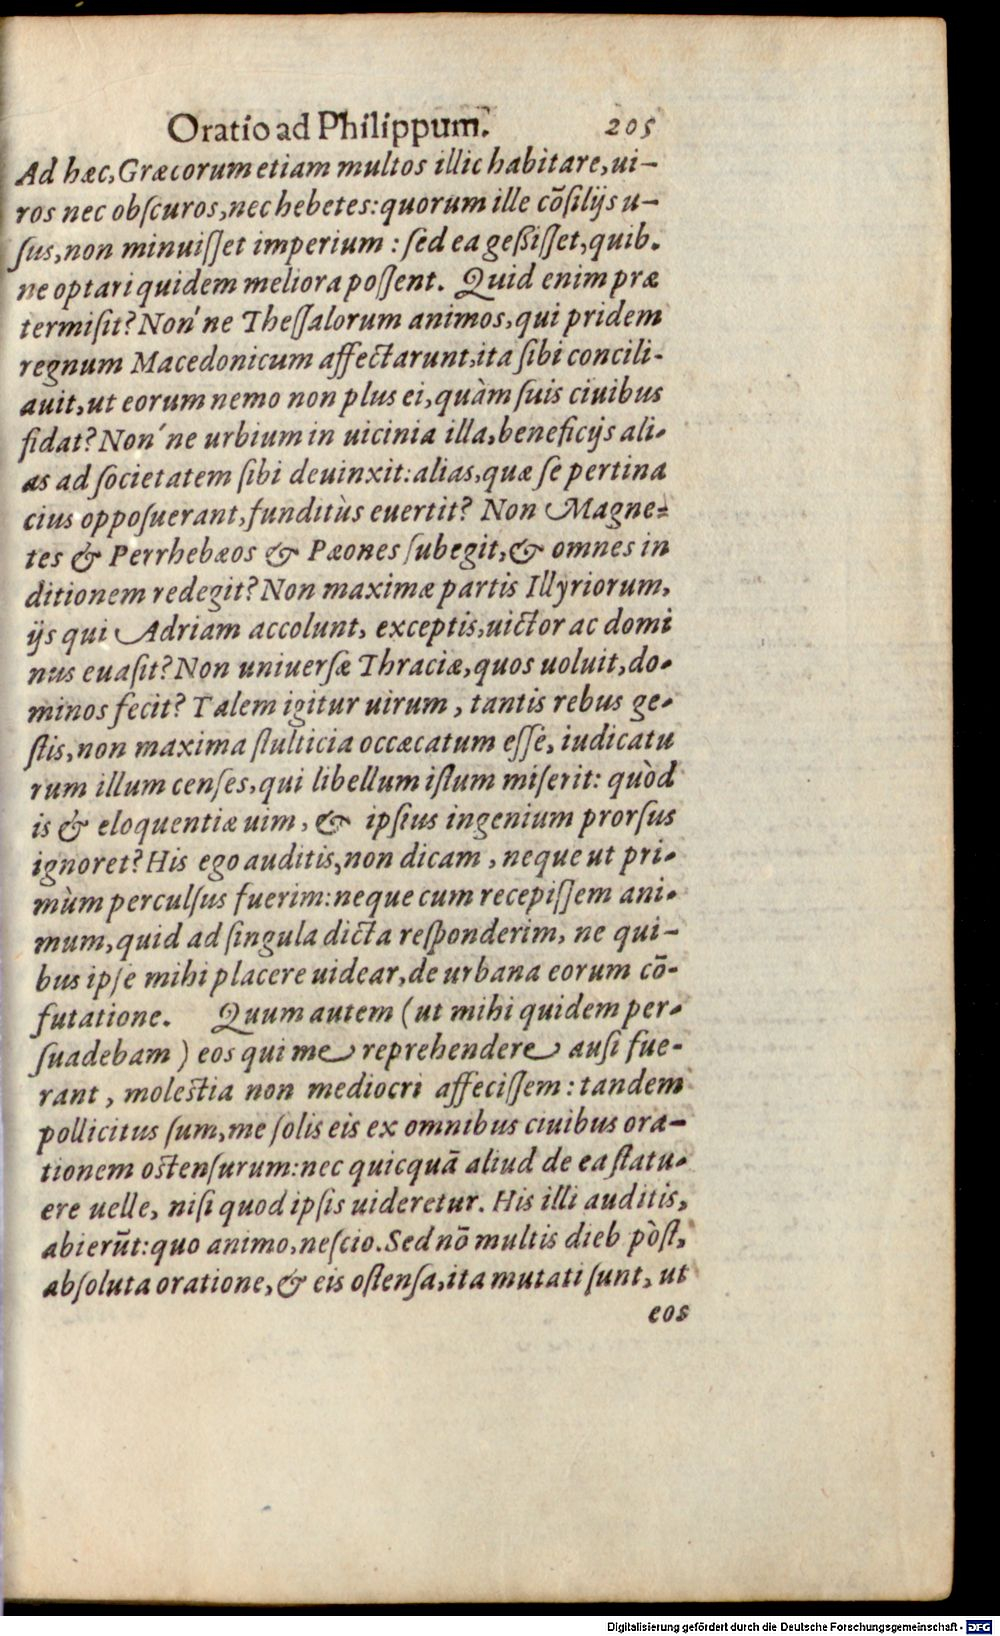 Oratio ad Philippum. 205
Ad hæc, Græcorum etiam multos illic habitare, ui-
ros nec obſcuros, nec hebetes: quorum ille cõſilijs u-
ſus, non minuiſſet imperium : ſed ea geßiſſet, quib.
ne optari quidem meliora poſſent. Quid enim præ
termiſit? Non'ne Theſſalorum animos, qui pridem
regnum Macedonicum affectarunt, ita ſibi concili-
auit, ut eorum nemo non plus ei, quàm ſuis ciuibus
fidat? Non'ne urbium in uicinia illa, beneficijs ali-
as ad ſocietatem ſibi deuinxit: alias, quæ ſe pertina
cius oppoſuerant, funditùs euertit? Non Magne-
tes & Perrhebæos & Pæones ſubegit, & omnes in
ditionem redegit? Non maximæ partis Illyriorum,
ijs qui Adriam accolunt, exceptis, uictor ac domi
nus euaſit? Non uniuerſæ Thraciæ, quos uoluit, do-
minos fecit? Talem igitur uirum, tantis rebus ge-
ſtis, non maxima ſtulticia occæcatum eſſe, iudicatu
rum illum cenſes, qui libellum iſtum miſerit: quòd
is & eloquentiæ uim, & ipſius ingenium prorſus
ignoret? His ego auditis, non dicam, neque ut pri-
mùm perculſus fuerim: neque cum recepiſſem ani-
mum, quid ad ſingula dicta reſponderim, ne qui-
bus ipſe mihi placere uidear, de urbana eorum cõ-
futatione. Quum autem (ut mihi quidem per-
ſuadebam) eos qui me reprehendere auſi fue-
rant, moleſtia non mediocri affeciſſem: tandem
pollicitus ſum, me ſolis eis ex omnibus ciuibus ora-
tionem oſtenſurum: nec quicquã aliud de ea ſtatu-
ere uelle, niſi quod ipſis uideretur. His illi auditis,
abierũt: quo animo, neſcio. Sed nõ multis dieb pòſt,
abſoluta oratione, & eis oſtenſa, ita mutati ſunt, ut
eos
Digitalisierung gefördert durch die Deutsche Forschungsgemeinschaft - DFG